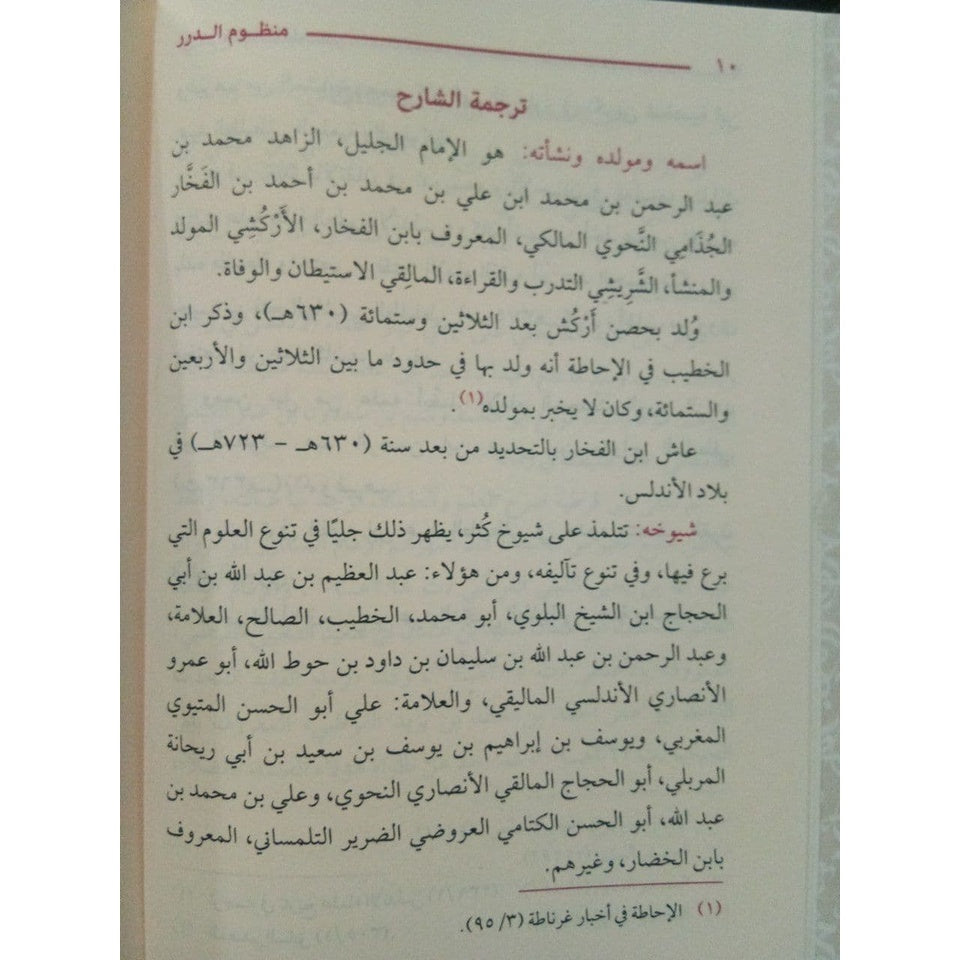 ١٠ منظوم الدرر
ترجمة الشارح
اسمه ومولده ونشأته: هو الإمام الجليل، الزاهد محمد بن
عبد الرحمن بن محمد ابن علي بن محمد بن أحمد بن الفَخَّار
الجُذَامِي النَّحوي المالكي، المعروف بابن الفخار، الأَرْكُشِي المولد
والمنشأ، الشَّرِيشِي التدرب والقراءة، المالِقِي الاستيطان والوفاة.
وُلد بحصن أَرْكُش بعد الثلاثين وستمائة (٦٣٠هـ)، وذكر ابن
الخطيب في الإحاطة أنه ولد بها في حدود ما بين الثلاثين والأربعين
والستمائة، وكان لا يخبر بمولده(١).
عاش ابن الفخار بالتحديد من بعد سنة (٦٣٠هـ - ٧٢٣هـ) في
بلاد الأندلس.
شيوخه: تتلمذ على شيوخ كُثر، يظهر ذلك جليًا في تنوع العلوم التي
برع فيها، وفي تنوع تآليفه، ومن هؤلاء: عبد العظيم بن عبد الله بن أبي
الحجاج ابن الشيخ البلوي، أبو محمد، الخطيب، الصالح، العلامة،
وعبد الرحمن بن عبد الله بن سليمان بن داود بن حوط الله، أبو عمرو
الأنصاري الأندلسي الماليقي، والعلامة: علي أبو الحسن المتيوي
المغربي، ويوسف بن إبراهيم بن يوسف بن سعيد بن أبي ريحانة
المربلي، أبو الحجاج المالقي الأنصاري النحوي، وعلي بن محمد بن
عبد الله، أبو الحسن الكتامي العروضي الضرير التلمساني، المعروف
بابن الخضار، وغيرهم.
(١) الإحاطة في أخبار غرناطة (٣/ ٩٥).